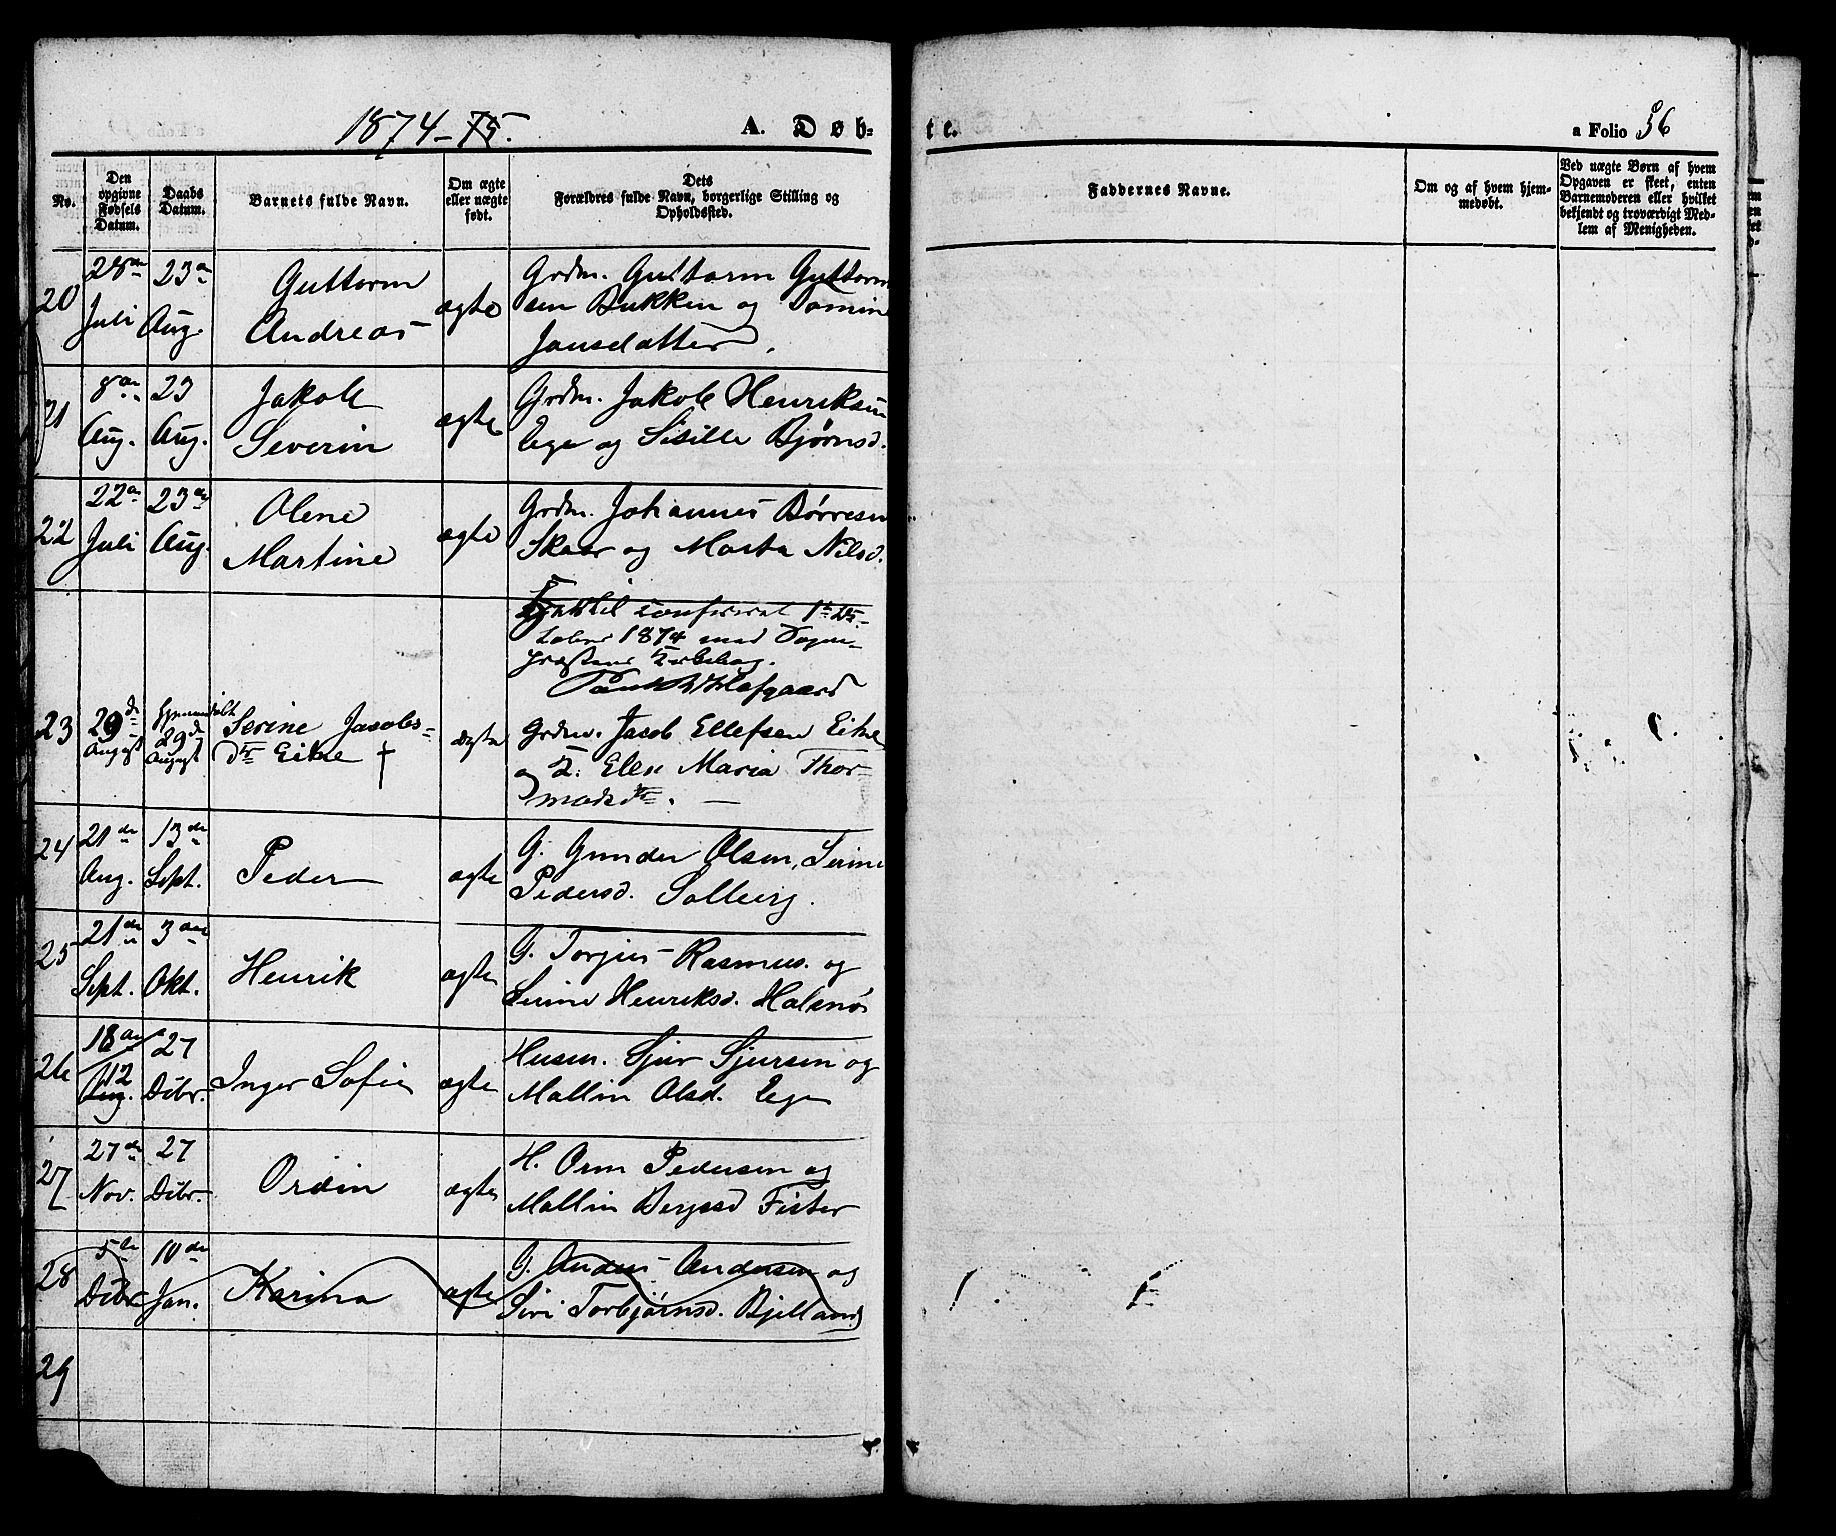 1874-75.
A. Døb-
te.
a Folio 56
No.
Den
opgivne
Fødsels
Datum.
Daabs
Datum.
Barnets fulde Navn.
Om ægte
eller uægte
født.
Dets
Forældres fulde Navn, borgerlige Stilling og
Opholdssted.
Faddernes Navne.
Om og af hvem hjem-
medøbt.
Ved uægte Børn af hvem
Opgaven er skeet, enten
Barnemoderen eller hvilket
bekjendt og troværdigt Med-
lem af Menigheden.
20
28de
Juli
23de
Aug.
Guttorm
Andreas
ægte
Grdm. Guttorm Guttorm
sen Bukken og
Jonsdatter.
21
8de
Aug.
23
Aug.
Jakob
Severin
ægte
Grdm. Jakob Henriksen
Ege og Sisille Bjørnsd.
22
22de
Juli
23de
Aug.
Olene
Martine
ægte
Grdm. Johannes Børresen
Skaar og Marta Nilsd.
1ste Ok-
tober 1874 med Sogne-
præstens
23
29de
August
Hjemmedøbt
29de
August
Serine Jacobs-
dtr Eike †
ægte
Grdm. Jacob Ellefsen Eike
og H. Elen Maria Thor-
modsdtr. —
24
21de
Aug.
13de
Sept.
Peder
ægte
G. Gunder Olsen, Serine
Pedersd. Solberg.
25
21de
Sept.
3die
Okt.
Henrik
ægte
G. Torjus Rasmus. og
Serine Henriksd. Halsnø
26
18de
12
Aug.
27
Dcbr.
Inger Sofie
ægte
Husm. Sjur Sjursen og
Mallin Olsd. Ege
27
27de
Nov.
27
Dcbr.
Ordin
ægte
H. Orm Pedersen og
Mallin Fister
28
5te
Dcbr.
10de
Jan.
Karina
ægte
G. Anders Andersen og
Siri Torbjørnsd. Bjelland
29